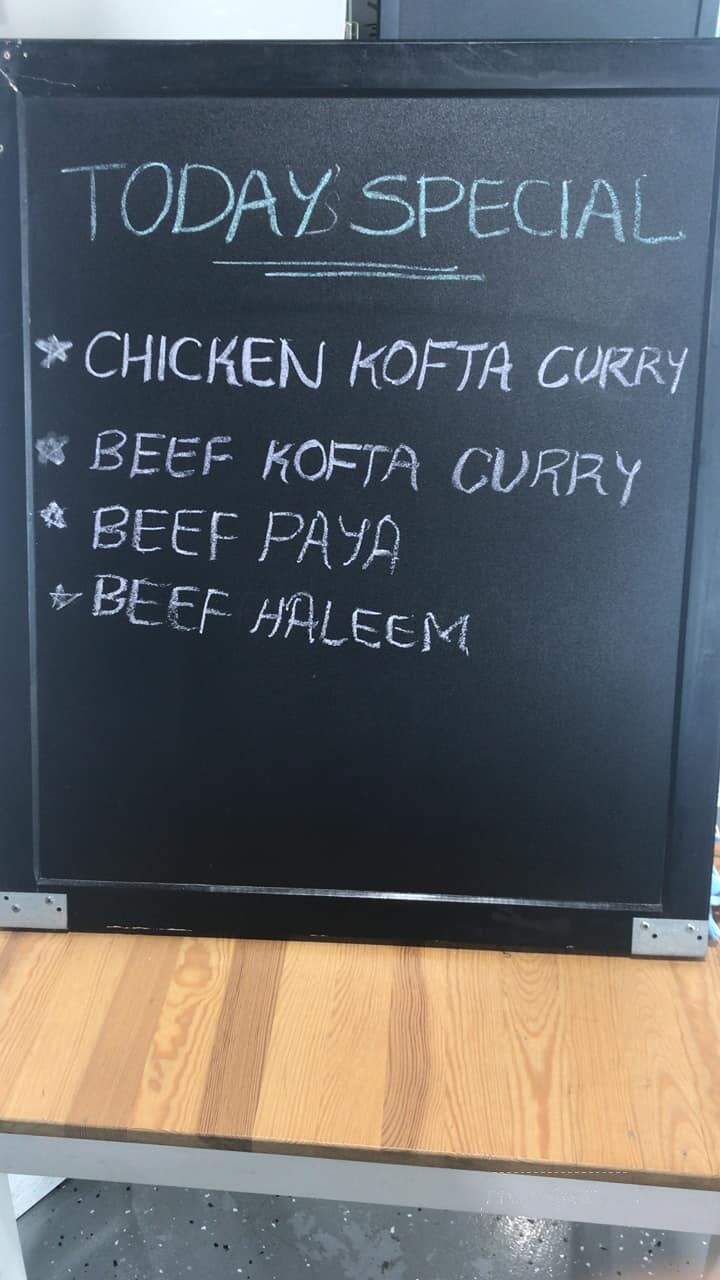 TODAY'S SPECIAL
CHICKEN KOFTA CURRY
BEEF KOFTA CURRY
BEEF PAYA
BEEF HALEEM